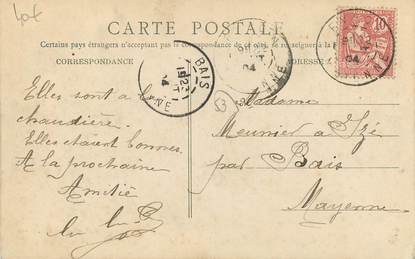 CARTE POSTALE
Certains pays étrangers n'acceptant pas la correspondance de ce côté, se renseigner à la
CORRESPONDANCE
ADRESSE
BAIS
10
04
Elles sont à la
chaudière.
Elles étaient bonnes.
A la prochaine
Amitié
Madame
Meunier à Izé
par Bais
Mayenne